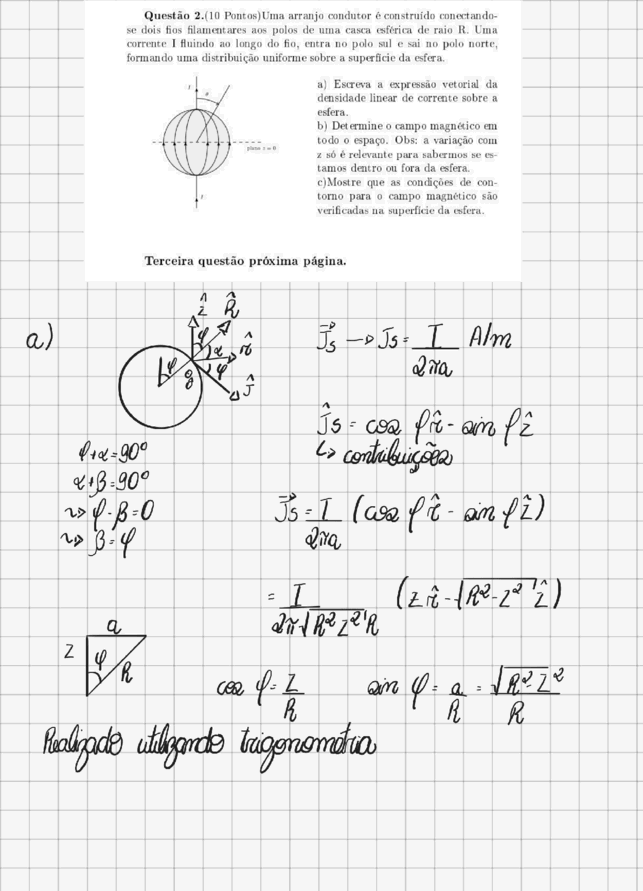 Questão 2.(10 Pontos)Uma arranjo condutor é construído conectando-
se dois fios filamentares aos polos de uma casca esférica de raio R. Uma
corrente I fluindo ao longo do fio, entra no polo sul e sai no polo norte,
formando uma distribuição uniforme sobre a superfície da esfera.
a) Escreva a expressão vetorial da
densidade linear de corrente sobre a
esfera.
b) Determine o campo magnético em
todo o espaço. Obs: a variação com
z só é relevante para sabermos se es-
tamos dentro ou fora da esfera.
c)Mostre que as condições de con-
torno para o campo magnético são
verificadas na superfície da esfera.
I
θ
plano z = 0
I
Terceira questão próxima página.
a)
ẑ R̂
φ α r̂
φ β φ Ĵ
J⃗s → Js = I/2πa A/m
Ĵs = cos φ r̂ - sin φ ẑ
↳ contribuições
φ+α=90°
α+β=90°
~> φ-β=0
~> β=φ
J⃗s = I/2πa (cos φ r̂ - sin φ ẑ)
= I/2π√R² Z² R (Z r̂ - √R²-Z² ẑ)
a
Z φ R
cos φ = Z/R sin φ = a/R = √R²-Z²/R
Realizado utilizando trigonometria